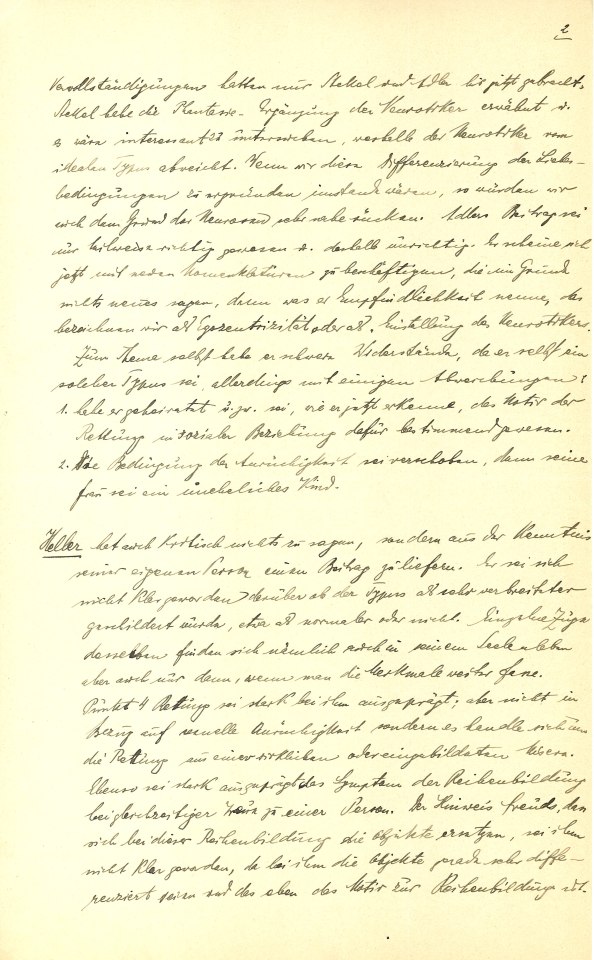 2
Vervollständigungen hätten nur Stekel und Adler bis jetzt gebracht.
Stekel habe die Phantasie-Ergänzung der Neurotiker erwähnt u.
es wäre interessant zu untersuchen, weshalb der Neurotiker vom
idealen Typus abweicht. Wenn wir diese Differenzierung der Liebes-
bedingungen zu ergründen imstande wären, so würden wir
auch dem Grund der Neurosen sehr nahe rücken. Adlers Beitrag sei
nur teilweise richtig gewesen u. deshalb unrichtig. Er scheine sich
jetzt mit neuen Nomenklaturen zu beschäftigen, die im Grunde
nichts neues sagen, denn was er Empfindlichkeit nenne, das
bezeichnen wir als Egozentrizität oder als Einstellung des Neurotikers.
Zum Thema selbst habe er schwere Widerstände, da er selbst ein
solcher Typus sei, allerdings mit einigen Abweichungen:
1. habe er geheiratet u. zw. sei, wie er jetzt erkenne, das Motiv der
Rettung in sozialer Beziehung dafür bestimmend gewesen.
2. Die Bedingung der Anrüchigkeit sei verschoben, denn seine
Frau sei ein uneheliches Kind.
Heller hat auch kritisch nichts zu sagen, sondern aus der Kenntnis
seiner eigenen Person einen Beitrag zu liefern. Er sei sich
nicht klar geworden darüber ob der Typus als sehr verbreiteter
geschildert wurde, etwa als normaler oder nicht. Einzelne Züge
desselben finden sich nämlich auch in seinem Seelenleben
aber auch nur dann, wenn man die Merkmale weiter fasse.
Punkt 4 Rettung sei stark bei ihm ausgeprägt; aber nicht in
Bezug auf sexuelle Anrüchigkeit sondern es handle sich um
die Rettung aus einer wirklichen oder eingebildeten Misere.
Ebenso sei stark ausgeprägt das Symptom der Reihenbildung
bei gleichzeitiger Treue zu einer Person. Der Hinweis Freuds, dass
sich bei dieser Reihenbildung die Objekte ersetzen, sei ihm
nicht klar geworden, da bei ihm die Objekte gerade sehr diffe-
renziert seien und das eben das Motiv zur Reihenbildung ist.